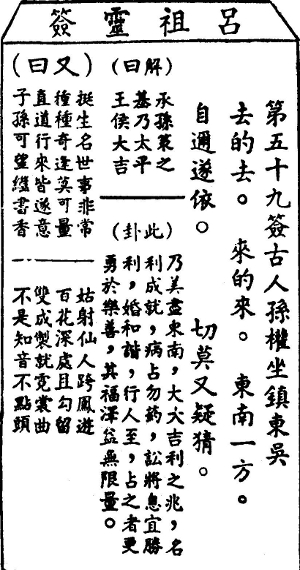 呂祖靈簽
第五十九簽古人孫權坐鎮東吳
去的去。來的來。東南一方。
自邇遂依。切莫又疑猜。
(解曰)
永孫策之
基乃太平
王侯大吉
(此卦)
乃美盡東南,大大吉利之兆,名
利成就,病占勿葯,訟將息宜勝
利,婚和諧,行人至,占之者更
勇於樂善,其福澤益無限量。
(又曰)
挺生名世事非常
種種奇逢莫可量
直道行來皆遂意
子孫可望繼書香
姑射仙人跨鳳遊
百花深處且勾留
雙成製就霓裳曲
不是知音不點頭